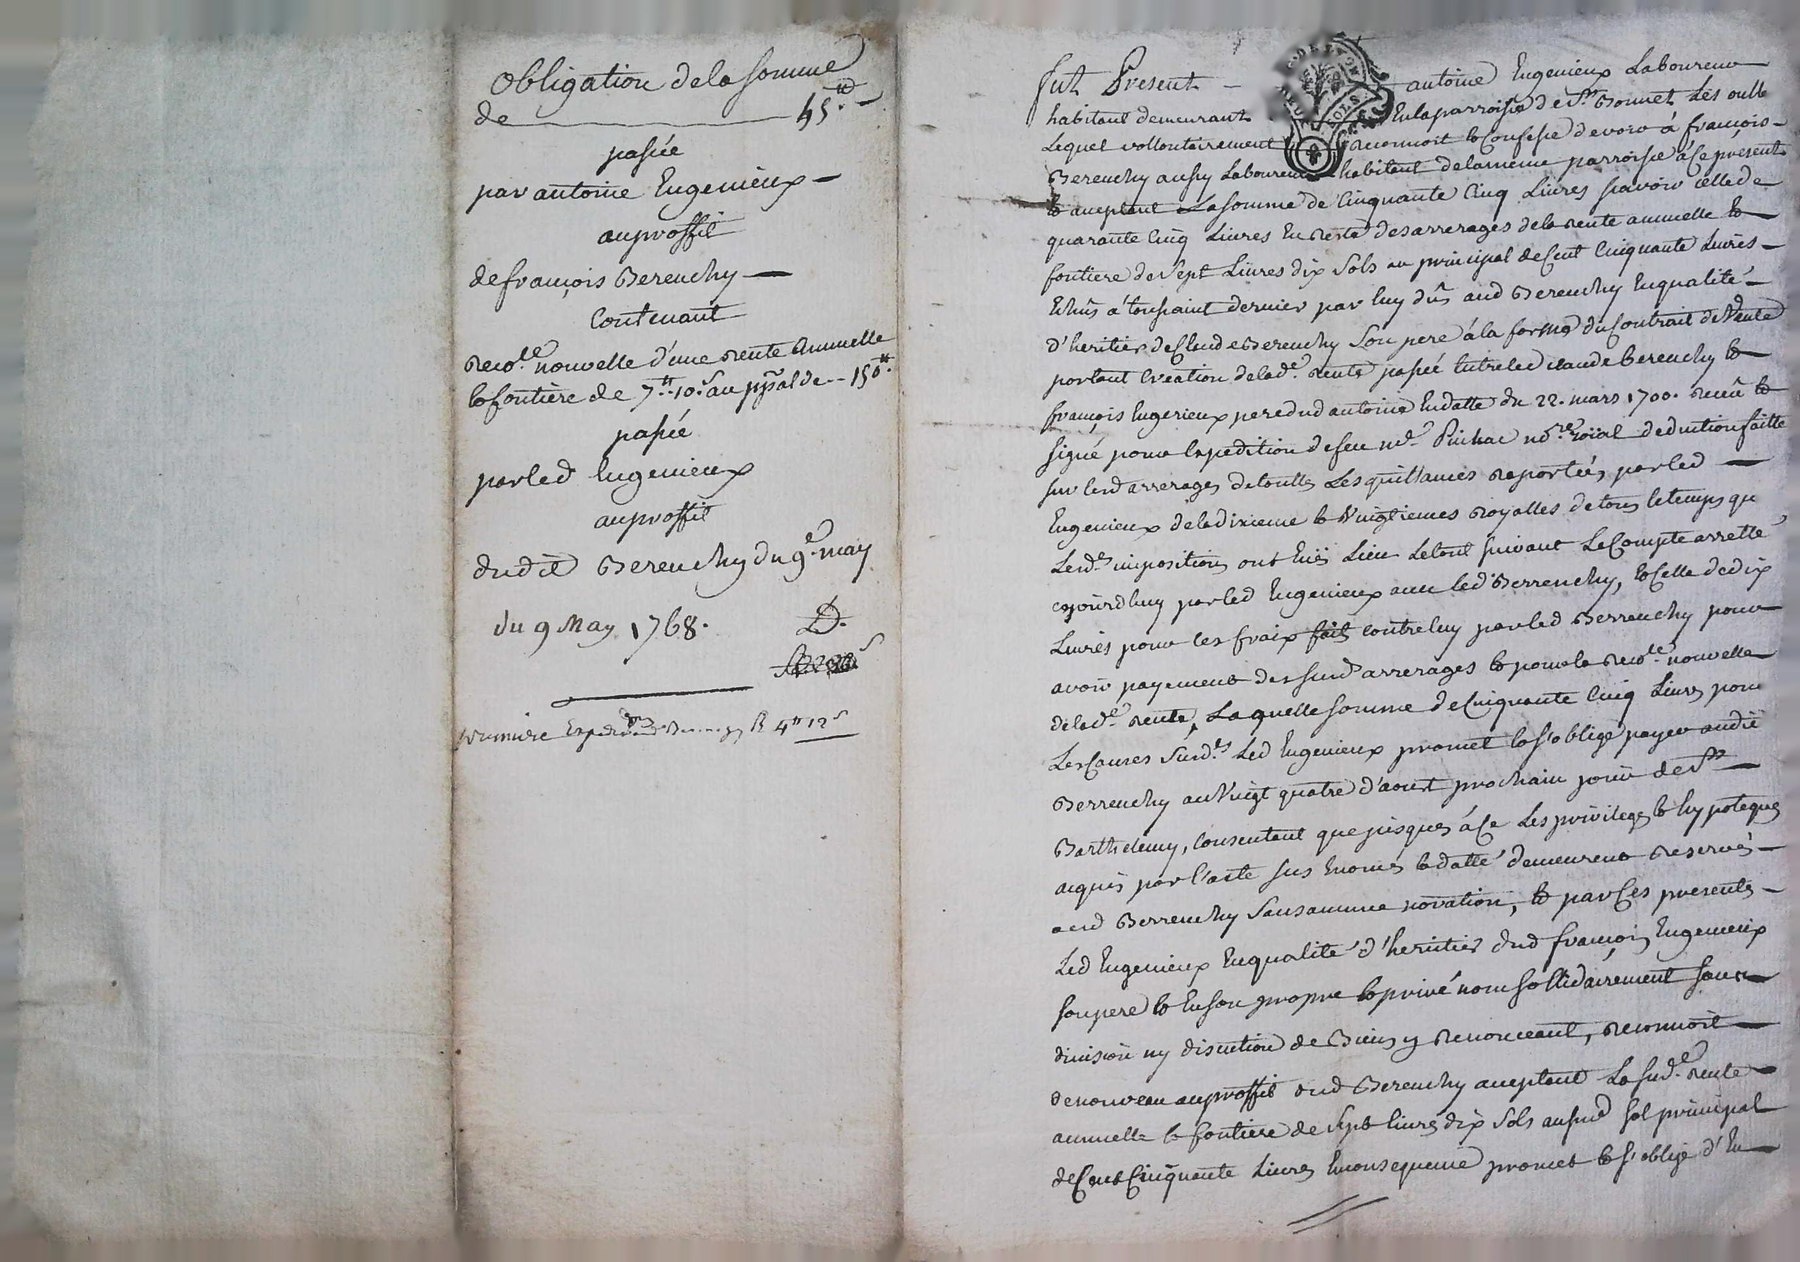 Obligation de la somme
de 45.tt
passée
par antoine Eugenieux
au proffit
de françois Bereuchy
Contenant
reco.te nouvelle d'une rente annuelle
& fontière de 7.tt 10.s au ppal de 150.tt
passée
par led Eugenieux
au proffit
dudit Bereuchy du 9.e may
du 9 May 1768.
D.
premiere Exped 4tt 12s
fut Present antoine Eugenieux Laboureur
habitant demeurant En la parroisse de St Bonnet Les oulle
Lequel vollontairement reconnoit & Confesse devoir á françois
Bereuchy aussy Laboureur habitant de la meme parroisse á ce present
& aceptant La somme de Cinquante Cinq Livres savoir celle de
quarante Cinq Livres En reste des arrerages de la rente annuelle &
fontiere de Sept Livres dix Sols au principal de Cent Cinquante Livres
Echûs á toussaint dernier par luy dûs aud Bereuchy En qualité
d'heritier de Claude Bereuchy Son pere á la forme du Contrait de Vente
portant Creation de lad.e rente passée Entre led claude bereuchy &
françois Eugenieux pere dud antoine En datte du 22. mars 1700. recû &
signé pour Expedition de feu me. Pinhac no.re roïal deduction faitte
sur lesd arrerages de touttes Les quittances raportées par led
Eugenieux de la dixieme & Vingtiemes royalles de tous le temps que
Lesd.es impositions ont Eû Lieu Le tout suivant Le Compte arretté
cejourd'huy par led Eugenieux avec led Berreuchy, & Celle de dix
Livres pour les fraix fait contre luy par led Berreuchy pour
avoir payement des susd arrerages & pour la reco.te nouvelle
de lad.e rente, Laquelle somme de Cinquante Cinq Livres pour
Les Causes susd.es Led Eugenieux promet & s'oblige payer audit
Berreuchy au Vingt quatre d'aoust prochain jour de St
Barthelemy, Consentant que jusques á Ce Les privileges & hypoteques
acquis par l'acte sus Enoncés & datté demeurent reservés
aud Berreuchy Sans aucune novation, & par Ces presentes
Led Eugenieux En qualité d'heritier dud françois Eugenieux
son pere & En son propre & privé nom sollidairement sans
division ny discution de Biens y renonceant, reconnoit
de nouveau au proffit dud Bereuchy aceptant La susd.e rente
annuelle & fontiere de Sept livres dix Sols au susd sol principal
de Cent Cinquante Livres En consequence promet & s'oblige d'En